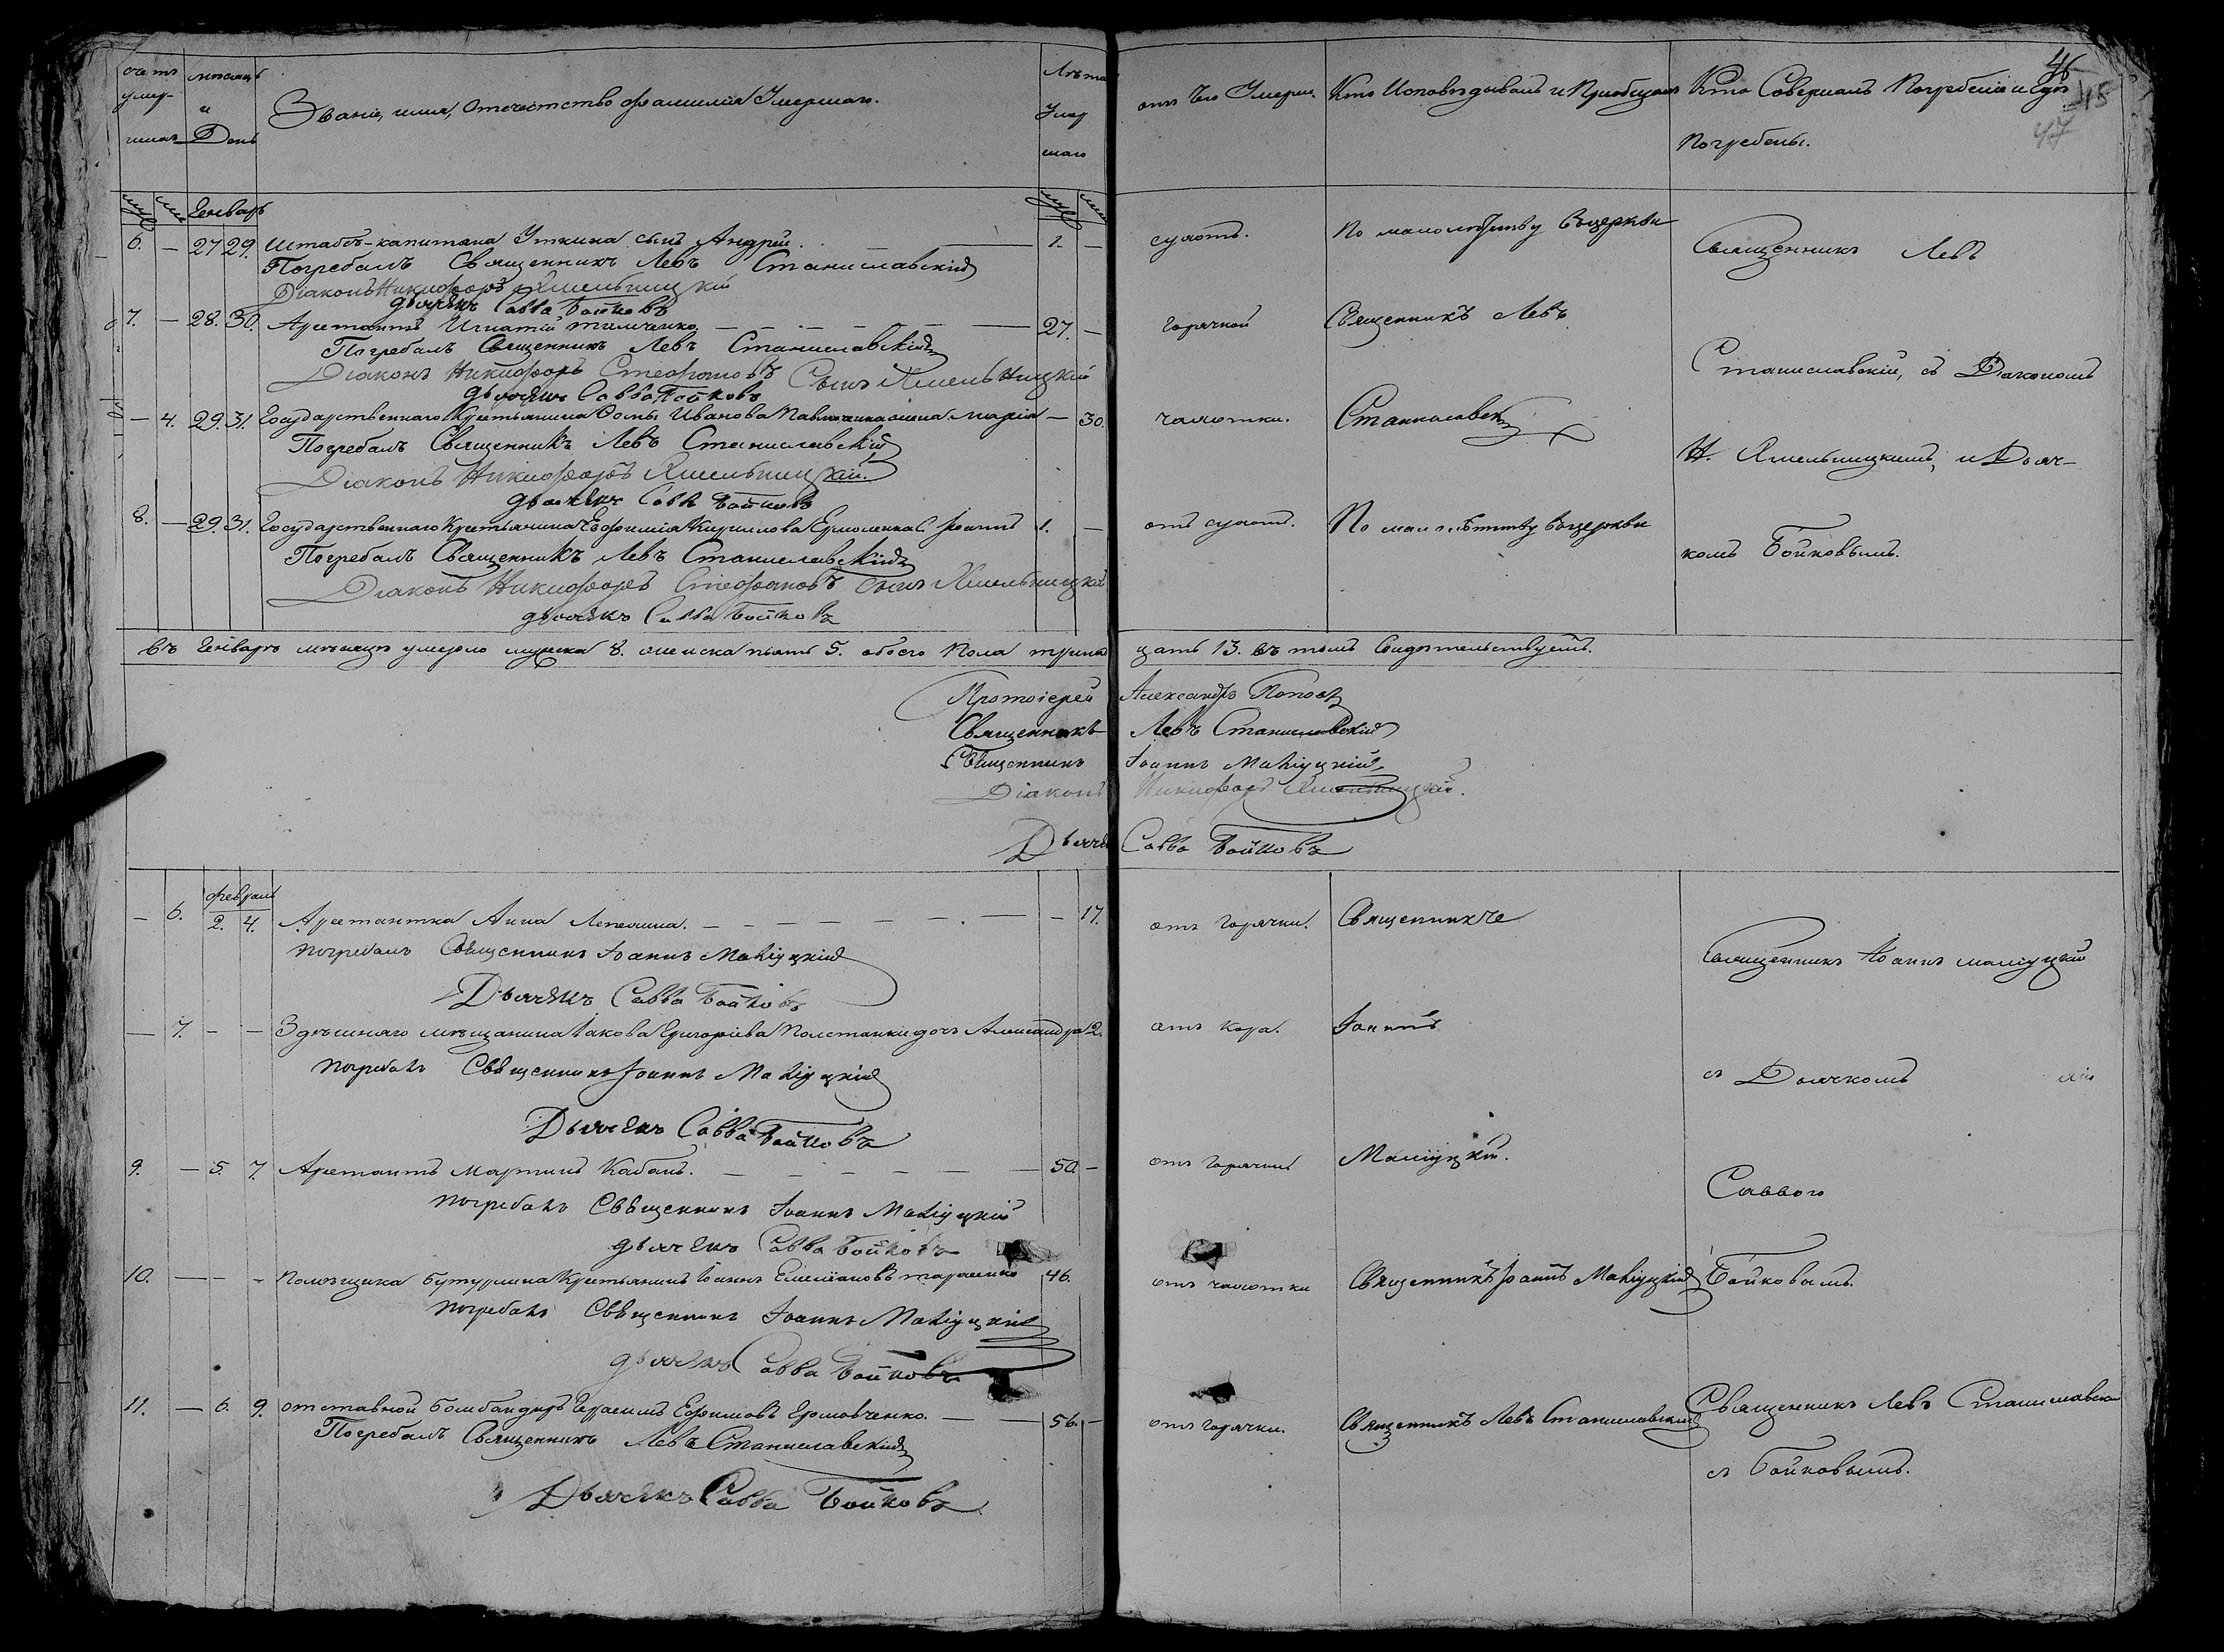 счетъ умер-шихъ
мѣсяцъ и День
Званіе, имя, отечество фамилія Умершаго.
Лѣта Умершаго
отъ Чего Умеръ.
Кто Исповѣдывалъ и Пріобщалъ
Кто Совершалъ Погребеніе и Гдѣ
Погребены.
46
45
47
Генварь
6. — 27 29. Штабсъ-капитана Уткина сынъ Андрей. — 1. —
сухотъ.
По малолѣтству въ церкви
Погребалъ Священникъ Левъ Станиславскій
Діаконъ Никифоръ Хмельницкій
дьячекъ Савва Бойковъ
Священникъ Левъ
7. — 28. 30. Арестантъ Игнатій Тимченко. — 27. —
горячкой
Священникъ Левъ
Погребалъ Священникъ Левъ Станиславскій
Діаконъ Никифоръ Стефановъ Сынъ Хмельницкій
дьячекъ Савва Бойковъ
Станиславскій, съ Діакономъ
— 4. 29. 31. Государственнаго Крестьянина Фомы Иванова жена Марія — 30.
чахотки.
Станиславскій
Погребалъ Священникъ Левъ Станиславскій
Діаконъ Никифоръ Хмельницкій.
дьячекъ Савва Бойковъ
Н. Хмельницкимъ, и Дьяч-
8. — 29. 31. Государственнаго Крестьянина Ефимія Кирилова Ермоленка С. Іоаннъ 1. —
отъ сухотъ.
По малолѣтству въ церкви
комъ Бойковымъ.
Погребалъ Священникъ Левъ Станиславскій
Діаконъ Никифоръ Стефановъ Сынъ Хмельницкій
дьячекъ Савва Бойковъ
Въ Генварѣ мѣсяцѣ умерло мужска 8. женска пять 5. обоего Пола тринадцать 13. въ томъ Свидѣтельствуемъ.
Протоіерей Александръ Поповъ
Священникъ Левъ Станиславскій
Священникъ Іоаннъ
Діаконъ Никифоръ Хмельницкій.
Дьячекъ Савва Бойковъ
Февраль
— 6. 2. 4. Арестантка Анна — 17.
отъ горячки.
Священникъ
погребалъ Священникъ Іоаннъ
Дьячекъ Савва Бойковъ
Священникъ Іоаннъ
— 7. — — Здѣшняго мѣщанина Іакова Григоріева дочь Александра 2.
отъ кора.
Іоаннъ
погребалъ Священникъ Іоаннъ
Дьячекъ Савва Бойковъ
съ Дьячкомъ
9. — 5. 7. Арестантъ Мартинъ Кабанъ. — 50. —
отъ горячки
погребалъ Священникъ Іоаннъ
дьячекъ Савва Бойковъ
Саввою
10. — — — Помѣщика Бутурлина Крестьянинъ Іоаннъ Емеліановъ Тараненко 46.
отъ чахотки
Священникъ Іоаннъ
Бойковымъ.
погребалъ Священникъ Іоаннъ
дьячекъ Савва Бойковъ
11. — 6. 9. отставной бомбандиръ Герасимъ Ефимовъ Ермовченко. — 56. —
отъ горячки.
Священникъ Левъ Станиславскій
Священникъ Левъ Станиславскій
Погребалъ Священникъ Левъ Станиславскій
Дьячекъ Савва Бойковъ
съ Бойковымъ.